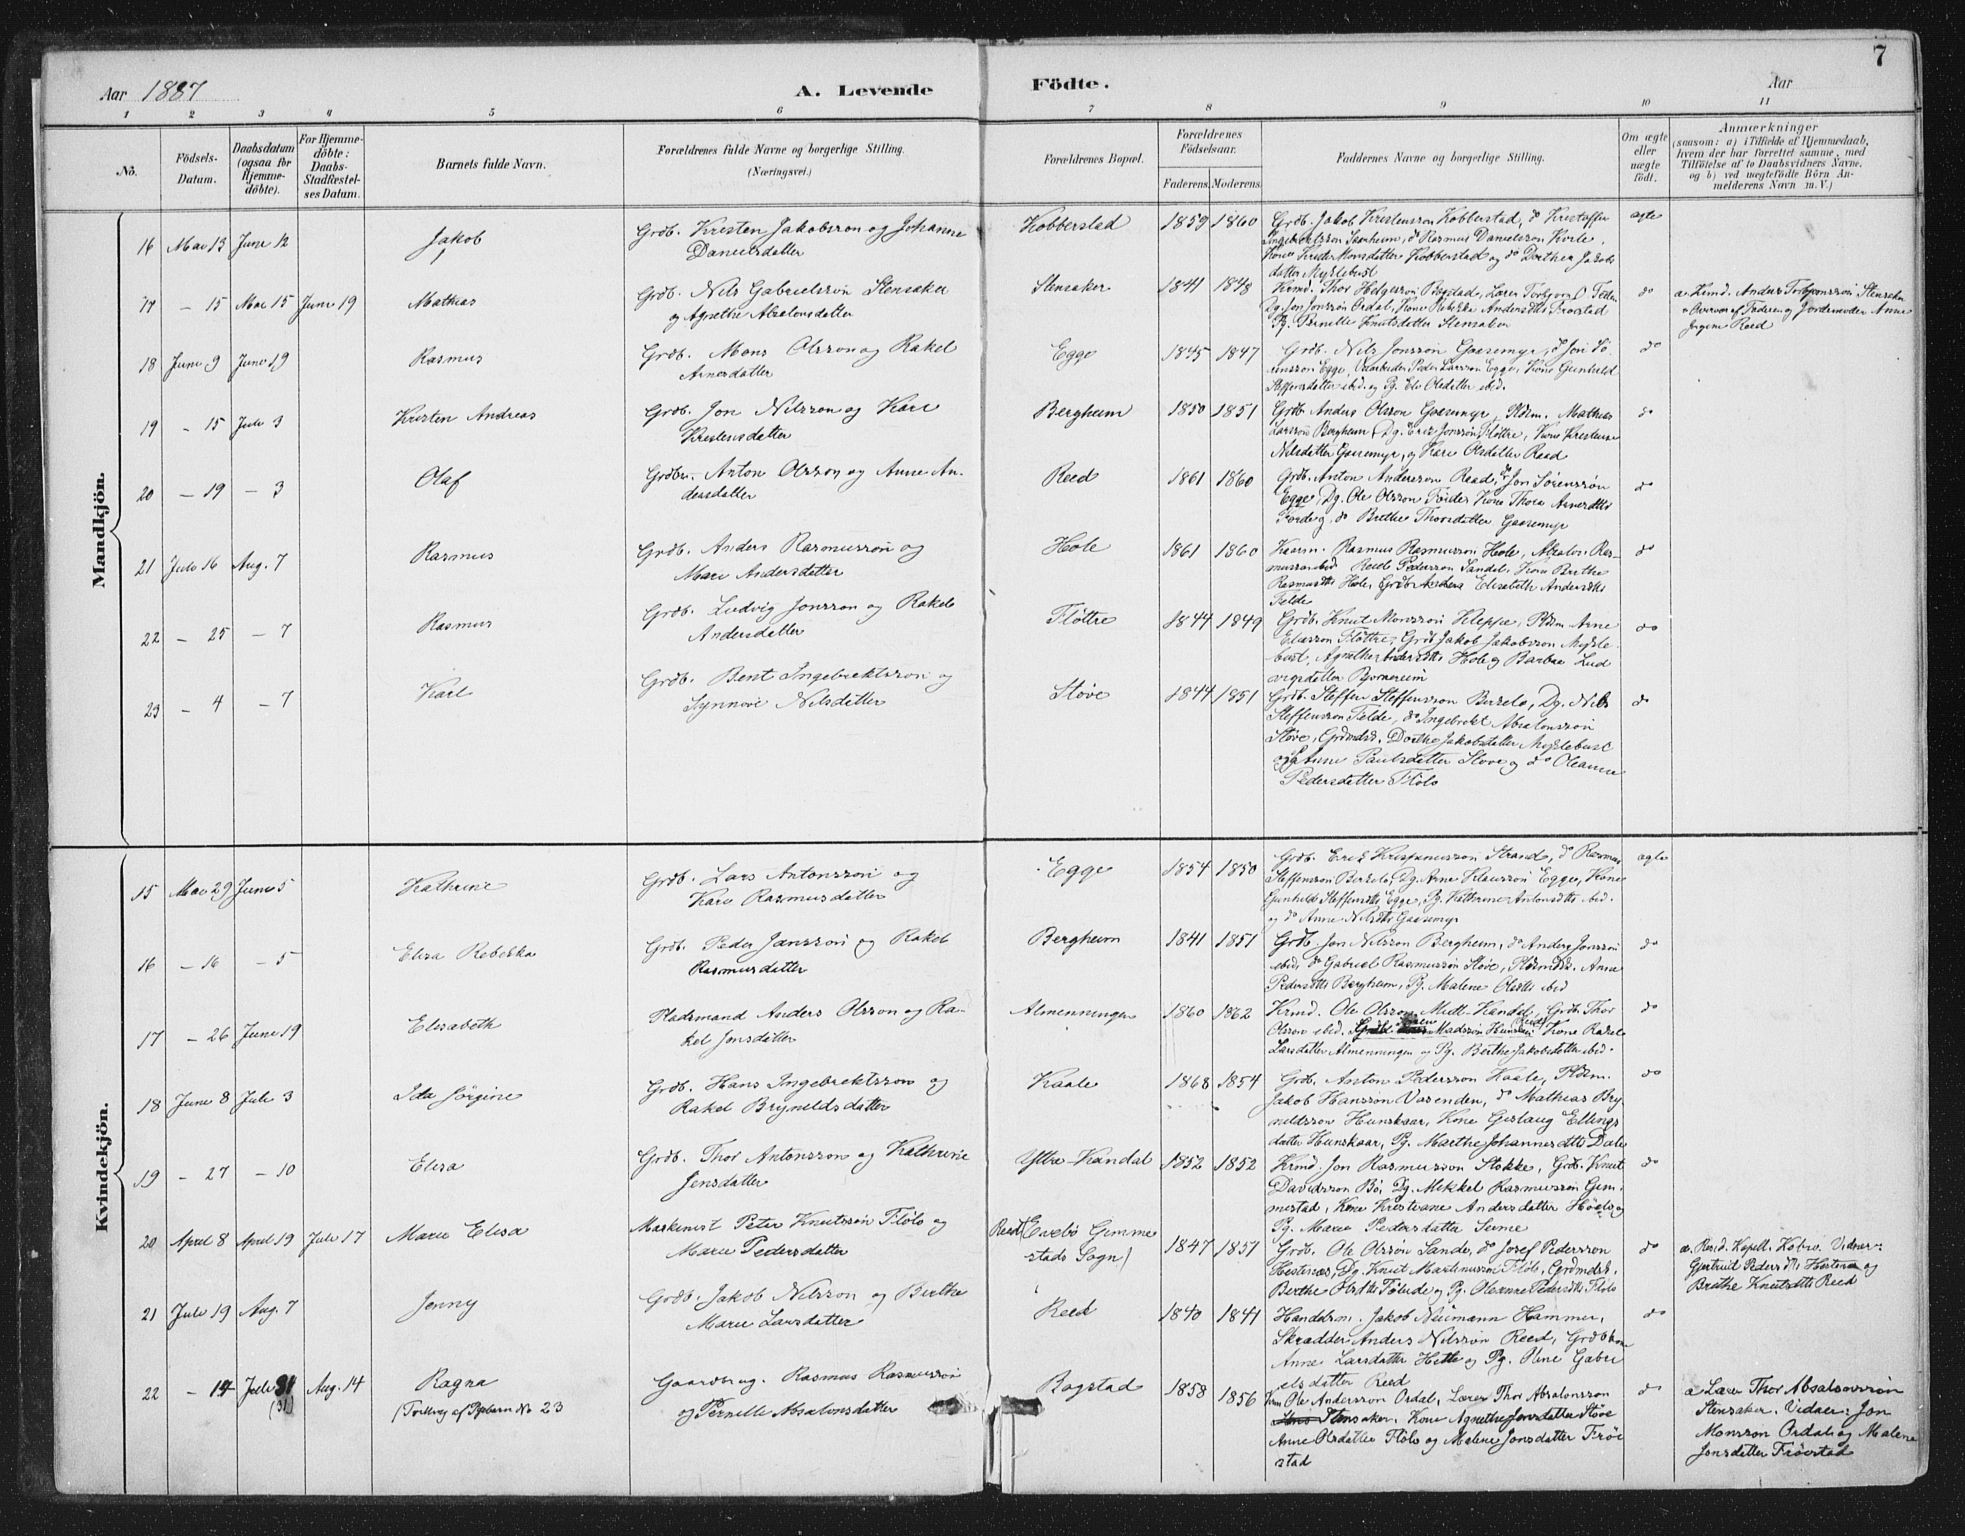 7
Aar 1887
A. Levende Födte.
Aar
1 2 3 4 5 6 7 8 9 10 11
No.
Födsels-Datum.
Daabsdatum (ogsaa for Hjemme-döbte).
For Hjemme-döbte: Daabs-Stadfæstel-ses Datum.
Barnets fulde Navn.
Forældrenes fulde Navne og borgerlige Stilling.
(Næringsvei.)
Forældrenes Bopæl.
Forældrenes Födselsaar.
Faderens. Moderens.
Faddernes Navne og borgerlige Stilling.
Om ægte eller uægte födt.
Anmærkninger
(saasom: a) i Tilfælde af Hjemmedaab, hvem der har forrettet samme, med Tilföielse af to Daabsvidners Navne, og b) ved uægtefödte Börn An-melderens Navn m. V.)
Mandkjön.
16 Mai 13 Juni 12 Jakob Grdb. Kristen Jakobsson og Johanne
Danielsdatter
Kobberstad 1859 1860 Grdb. Jakob Kristensson Kobberstad, do Kristoffer
Ingebrektsson Saanheim, do Rasmus Danielsson Kvile,
datter Myklebust
ægte
17 – 15 Mai 15 Juni 19 Mathias Grdb. Nils Gabrielsson Stensaker
og Agnethe Absalonsdatter
Stensaker 1841 1848
Pg. Pernille Knutsdatter Stensaker
do
18 Juni 9 Juni 19 Rasmus Grdb. Mons Olsson og Rakel
Arnesdatter
Egge 1845 1847 Grdb. Nils Jonsson Gaasemyr, do Jon Sö-
rensson Egge, Peder Larsson Egge, Kone Gunhild
Steffensdatter ibid. og Pg. Eli Olsdatter ibid.
do
19 – 15 Juli 3 Kristen Andreas Grdb. Jon Nilsson og Kari
Kristensdatter
Bergheim 1850 1851 Grdb. Anders Olsson Gaasemyr, Pldsm. Mathias
Larsson Bergheim, Dg. Erik Jonsson Fløttre, Kone Kristense
Nilsdatter Gaasemyr, og Kari Olsdatter Reed
do
20 – 19 – 3 Olaf Grdbr. Anton Olsson og Anne An-
dersdatter
Reed 1861 1860 Grdb. Anton Andersson Reed, do Jon Sørensson
Egge, Dg. Ole Olsson Förder Kone Thora Arnesdtt
Förde og do Brethe Thorsdatter Gaasemyr
do
21 Juli 16 Aug. 7 Rasmus Grdb. Anders Rasmusson og
Mari Andersdatter
Hole 1861 1860 Kaarm. Rasmus Rasmusson Hole, Absalon Ras-
musson ibid. Peder Pedersson Sandal, Kone Brithe
Rasmusdtt Hole, Elisabeth Andersdtt
Felde
do
22 – 25 – 7 Rasmus Grdb. Ludvig Jonsson og Rakel
Andersdatter
Fløttre 1844 1849 Grdb. Knut Monsson Kleppe, Pldsm Arne
Eliasson Fløttre, Grdb Jakob Jakobsson Mykle-
bust, Agnethe Andersdtt Hole og Barbra Lud
vigsdatter Bjørnereim
do
23 – 4 – 7 Karl Grdb. Bent Ingebrektsson og
Synnøve Nilsdatter
Støve 1844 1851 Grdb. Steffen Steffensson Birkelo, Dg. Nils
Steffensson Felde, do Ingebrekt Absalonsson
Støve, Grdmdsk. Dorthe Jakobsdatter Myklebust
Anne Paulsdatter Støve og do Oleanne
Pedersdatter Flölo
do
Kvindekjön.
15 Mai 29 Juni 5 Kathrine Grdb. Lars Antonsson og
Kari Rasmusdatter
Egge 1854 1850 Grdb. Erik Kristiansson Strand, do Rasmus
Steffensson Birkelo, Dg. Arne Klausson Egge, Kone
Gunhild Steffensdtt Egge, Pg. Kathrine Antonsdtt ibid.
og do Anne Nilsdtt Gaasemyr
ægte
16 – 16 – 5 Elisa Rebekka Grdb. Peder Jonsson og Rakel
Rasmusdatter
Bergheim 1841 1851 Grdb. Jon Nilsson Bergheim, do Anders Jonsson
ibid, do Gabriel Rasmusson Støve, Pldsmdsk. Anne
Pedersdtt Bergheim, Pg. Malene Olsdtt ibid
do
17 – 26 Juni 19 Elisabeth Pladsmand Anders Olsson og Ra-
kel Jonsdatter
Almenningen 1860 1862 Krmd. Ole Olsson Midt-Kandal, Grdb. Thor
Olsson ibid. Madsson Kone Rakel
Larsdatter Almenningen og Pg. Berthe Jakobsdatter ibid.
do
18 Juni 8 Juli 3 Ida Jörgine Grdb. Hans Ingebrektsson og
Rakel Brynildsdatter
Kaale 1868 1854 Grdb. Anton Pedersson Kaale, Pldsm.
Jakob Hansson Vasenden, do Mathias Bry
nildsson Hunskaar, Kone Gislaug Ellings
datter Hunskaar, Pg. Marthe Johannesdtt Dale
do
19 – 27 – 10 Elisa Grdb. Thor Antonsson og Kathrine
Jensdatter
Ytre-Kandal 1852 1852 Krmd. Jon Rasmusson Stokke, Grdb. Knut
Davidsson Bö, Dg. Mikkel Rasmusson Gim-
mestad, Kone Kristiane Andersdatter
Pg. Marie Pedersdatter Seime
do
20 April 8 April 19 Juli 17 Marie Elisa Maskinist Peter Knutsson Flölo og
Marie Pedersdatter
Reed (Evebö Gimme
stads Sogn) 1847 1857 Grdb. Ole Olsson Sande, do Josef Pedersson
Hestenes, Dg. Knut Martinusson Flölo, Grdmdsk.
Berthe Olsdtt og Pg. Oleanne Pedersdtt Flölo
do a. Resid. Kapell. Vidner:
Gjertrud Pedersdtt Hestenes og
Brithe Knutsdtt Reed
21 Juli 19 Aug. 7 Jenny Grdb. Jakob Nilsson og Birthe
Marie Larsdatter
Reed 1840 1841 Handelsm. Jakob Neumann Hammer,
Skrædder Anders Nilsson Reed, Grdbkone
Anne Larsdatter Hetle og Pg. Oline Gabri
elsdatter Reed
do
22 – 14 Juli 31 Aug. 14 Ragna
(31)
(Tvilling af Pigebarn No 23
Gaardbrug. Rasmus Rasmusson
og Pernille Absalonsdatter
Bogstad 1858 1856 Krm Ole Andersson Ordal, Lærer Thor Absalonsson
Stensaker, Kone Agnethe Jonsdatter Støve
Anne Olsdatter Flölo og Malene Jonsdatter Fröi
stad
do a Lærer Thor Absalonsson
Stensaker. Vidner: Jon
Monsson Ordal og Malene
Jonsdatter Fröistad